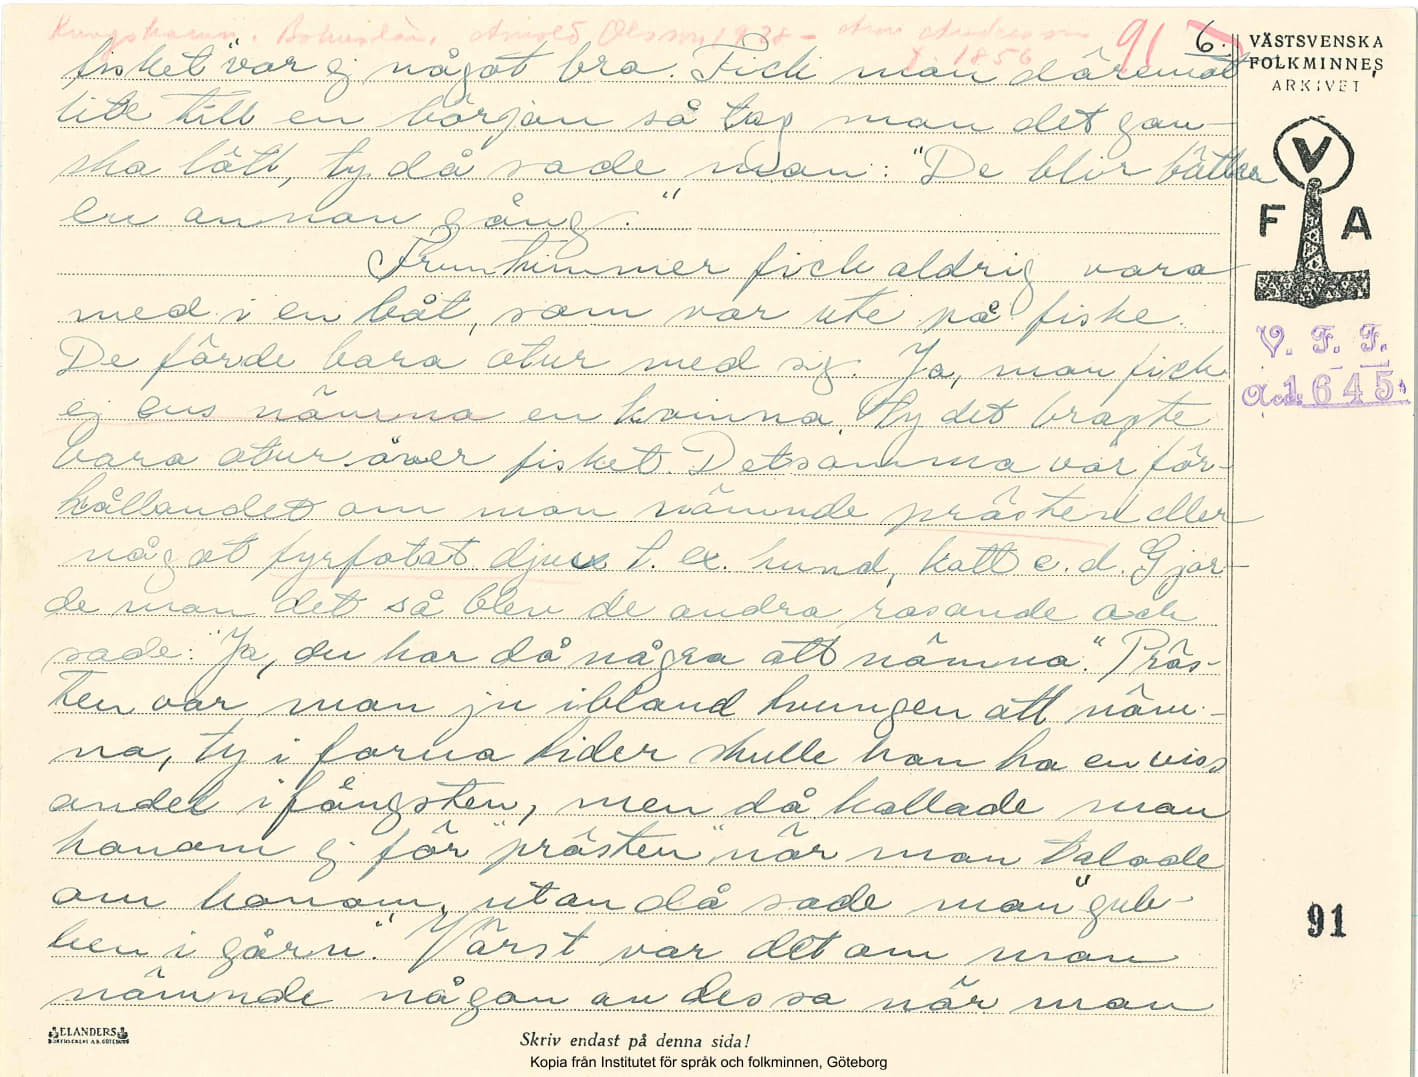 Kungshamn. Bohuslän. Arnold Olsson 1928 - 91 6.
f. 1856
VÄSTSVENSKA
FOLKMINNES
ARKIVET
fisket" var ej något bra. Fick man däremot
lite till en början så tog man det gan-
ska lätt, ty då sade man: "De blir bättre
en annan gång."
Fruntimmer fick aldrig vara
med i en båt, som var ute på fiske.
De förde bara otur med sig. Ja, man fick
ej ens nämna en kvinna, ty det bragte
bara otur över fisket. Detsamma var för-
hållandet om man nämnde prästen eller
något fyrfotat djur t. ex. hund, katt e. d. Gjor-
de man det så blev de andra rasande och
sade: "Ja, du har då några att nämna." Präs-
ten var man ju ibland tvungen att näm-
na, ty i forna tider skulle han ha en viss
andel i fångsten, men då kallade man
honom ej för "prästen" när man talade
om honom, utan då sade man "gub-
ben i gårn". Värst var det om man
nämnde någon av dessa när man
V
F A
V. F. F.
Acc. 1645
91
ELANDERS
BOKTRYCKERI A.B. GÖTEBORG
Skriv endast på denna sida!
Kopia från Institutet för språk och folkminnen, Göteborg